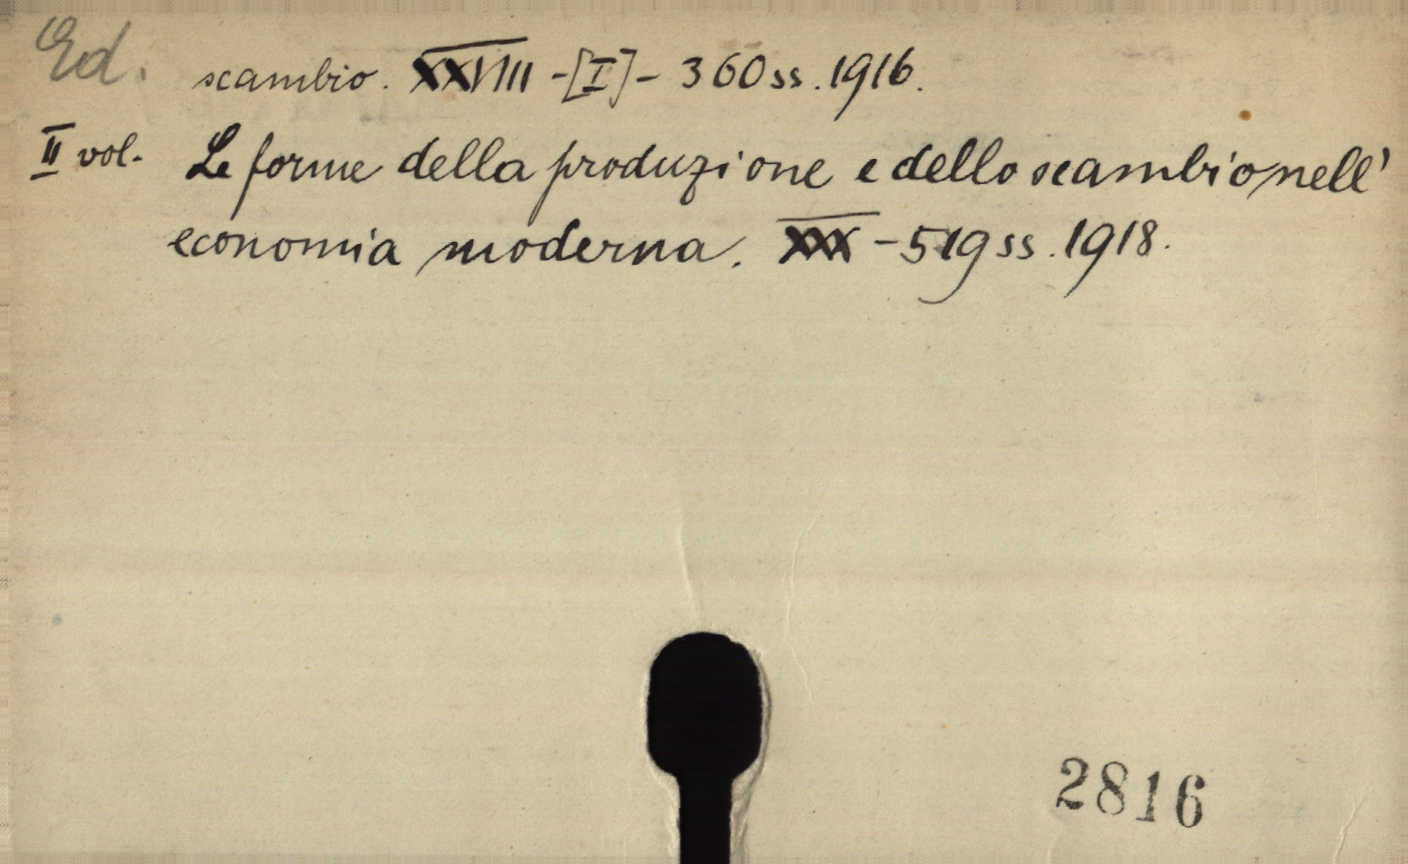 Ed.
scambio. XXVIII - [I] - 360 ss. 1916.
II vol. Le forme della produzione e dello scambio nell'
economia moderna. XXX - 519 ss. 1918.
2816